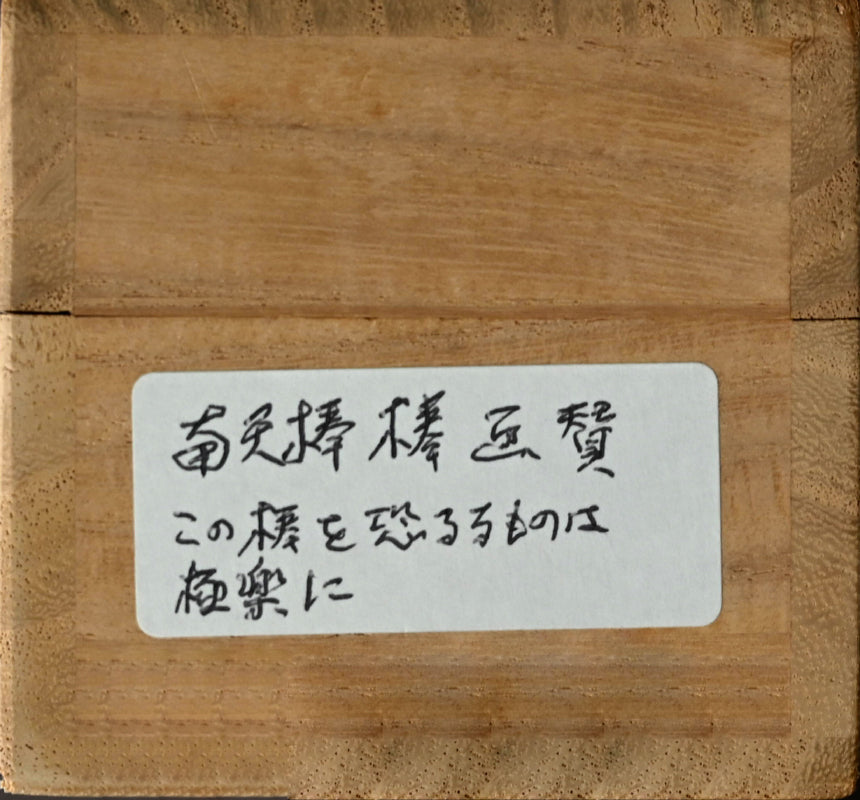 南天棒 棒 画 賛
この棒を恐るるものは
極楽に